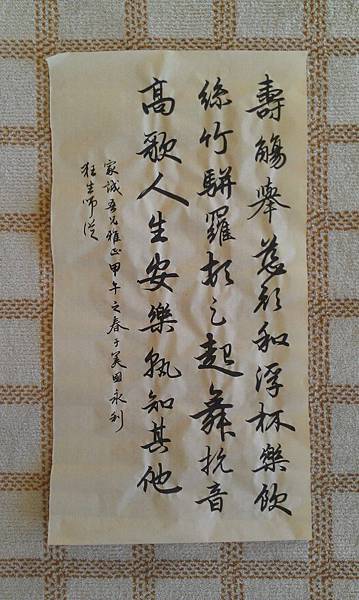 壽觴舉慈顏和浮杯樂飲
絲竹駢羅頓足起舞抗音
高歌人生安樂孰知其他
家誠吾兄雅正甲午之春于美田永利
狂生師